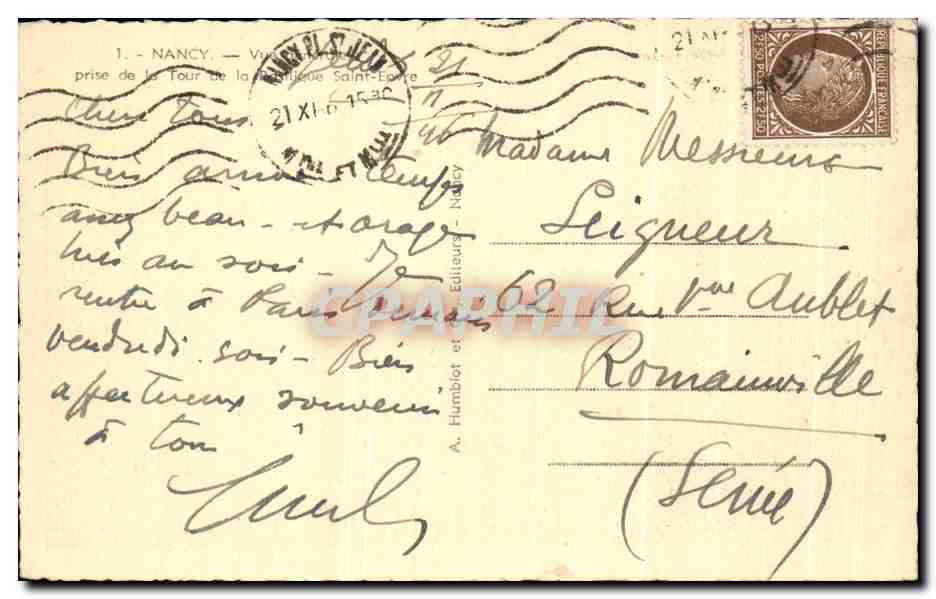 1. - NANCY. — Vue
prise de la Tour de la Basilique Saint-Epvre
NANCY PL. ST JEAN
21 XI
MTHE ET MLLE
21
11
46
Chers tous
Bien arrivé temps
assez beau - et orage
mis au soir - Je
rentre à Paris demain
vendredi soir - Bien
affectueux souvenir
à tous
A. Humblot et Editeurs - Nancy
Madame Messieurs
Seigneur
62 Rue Vve Aublet
Romainville
(Seine)
21 XI
REPUBLIQUE FRANÇAISE
2F50 POSTES 2F50
CPAPHIL